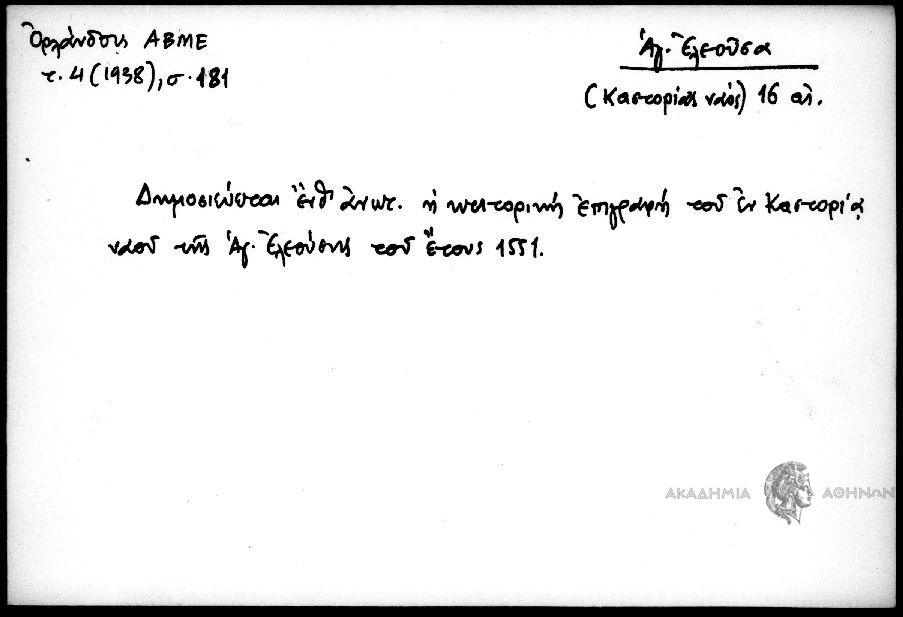 Ὀρλάνδος ΑΒΜΕ
τ. 4 (1938), σ. 181
Ἁγ. Ἐλεοῦσα
(Καστοριᾶς ναός) 16 αἰ.
Δημοσιεύεται ἔνθ' ἄνωτ. ἡ κτιτορική ἐπιγραφή τοῦ ἐν Καστορίᾳ
ναοῦ τῆς Ἁγ. Ἐλεούσης τοῦ ἔτους 1551.
ΑΚΑΔΗΜΙΑ ΑΘΗΝΩΝ